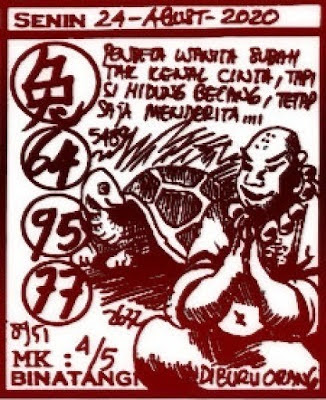 SENIN 24-AGUST-2020
PENDETA WANITA SUDAH
TAK KENAL CINTA, TAPI
SI HIDUNG BELANG, TETAP
SAJA MENDERITA....
兔
64
95
77
8951
2677
MK : 4/5
BINATANG DIBURU ORANG